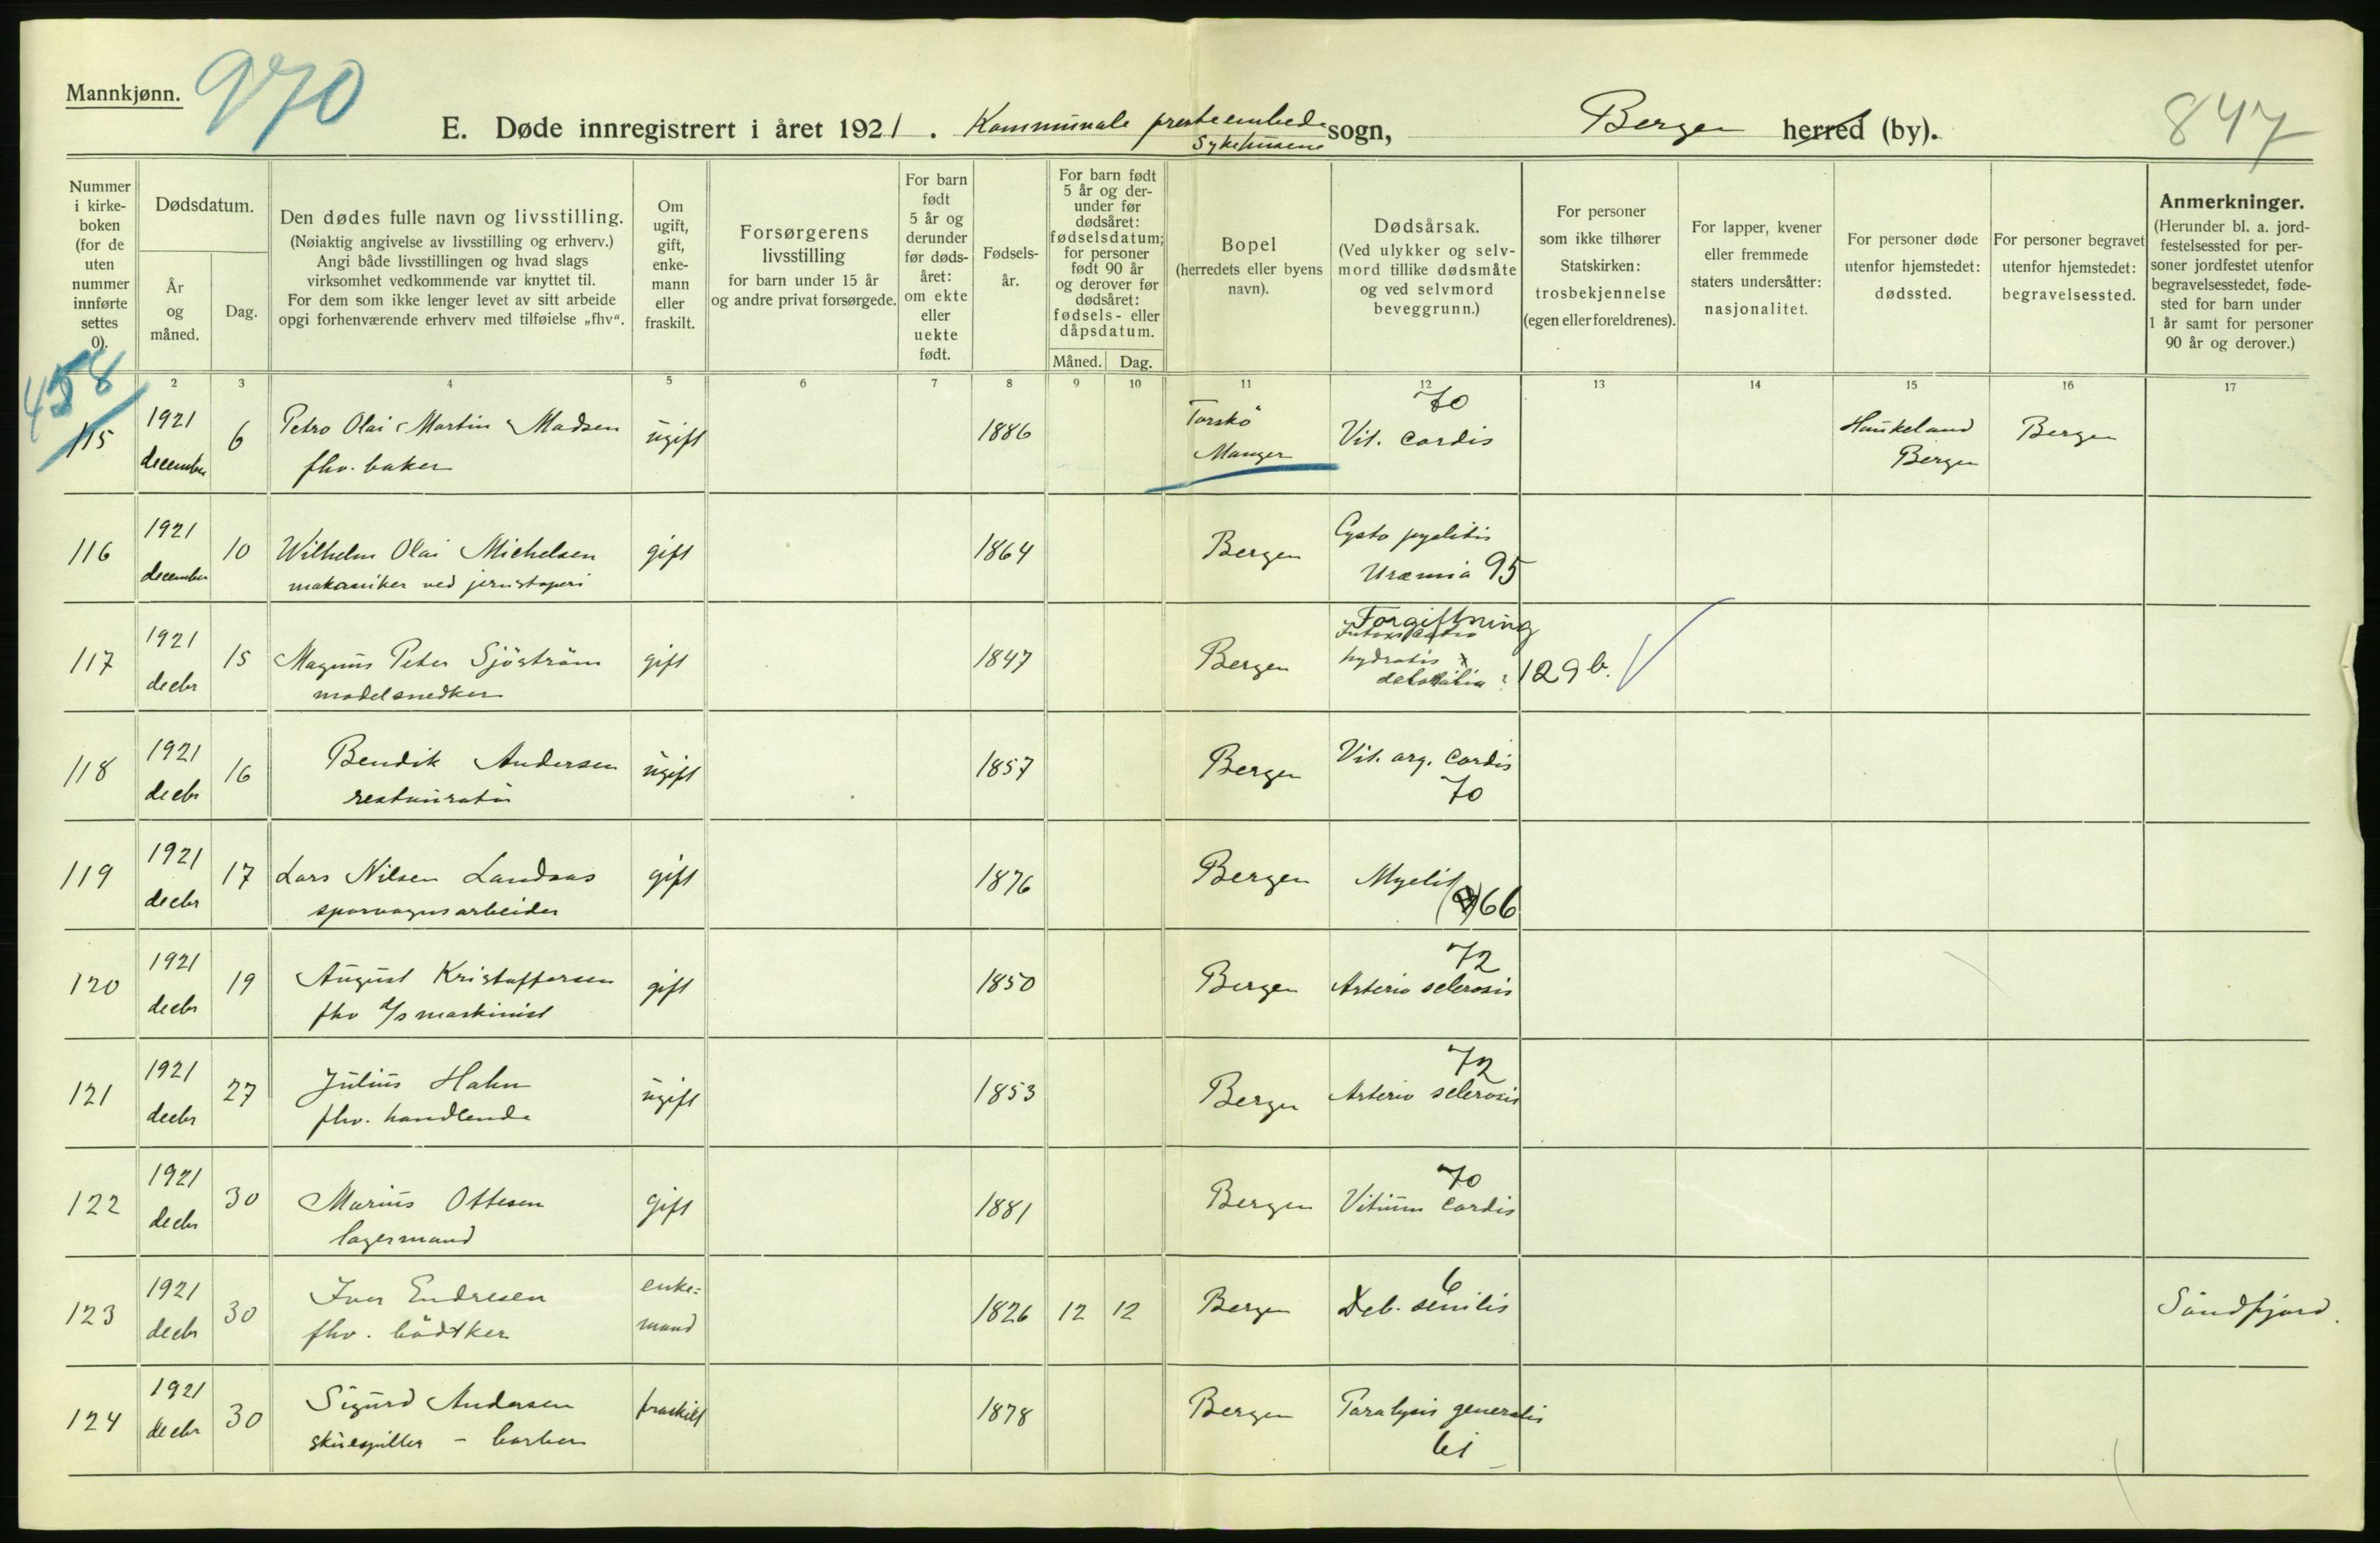 Mannkjønn.
970
E. Døde innregistrert i året 1921. Kommunale presteembede sogn, Bergen herred (by).
Sykehusene
847
Nummer i kirkeboken (for de uten nummer innførte settes 0).
Dødsdatum.
År og måned.
Dag.
Den dødes fulle navn og livsstilling.
(Nøiaktig angivelse av livsstilling og erhverv.)
Angi både livsstillingen og hvad slags
virksomhet vedkommende var knyttet til.
For dem som ikke lenger levet av sitt arbeide
opgi forhenværende erhverv med tilføielse „fhv“.
Om ugift, gift, enkemann eller fraskilt.
Forsørgerens livsstilling
for barn under 15 år
og andre privat forsørgede.
For barn født 5 år og derunder før dødsåret: om ekte eller uekte født.
Fødselsår.
For barn født 5 år og derunder før dødsåret: fødselsdatum; for personer født 90 år og derover før dødsåret: fødsels- eller dåpsdatum.
Måned. Dag.
Bopel
(herredets eller byens navn).
Dødsårsak.
(Ved ulykker og selvmord tillike dødsmåte og ved selvmord beveggrunn.)
For personer som ikke tilhører Statskirken: trosbekjennelse (egen eller foreldrenes).
For lapper, kvener eller fremmede staters undersåtter: nasjonalitet.
For personer døde utenfor hjemstedet: dødssted.
For personer begravet utenfor hjemstedet: begravelsessted.
Anmerkninger.
(Herunder bl. a. jordfestelsessted for personer jordfestet utenfor begravelsesstedet, fødested for barn under 1 år samt for personer 90 år og derover.)
2 3 4 5 6 7 8 9 10 11 12 13 14 15 16 17
458
115 1921 december 6 Petro Olai Martin Madsen ugift 1886 Torskö Manger 70 Vit. cordis Haukeland Bergen Bergen
fhv. baker
116 1921 december 10 Wilhelm Olai Michelsen gift 1864 Bergen Cysto pyelitis Uræmia 95
mekaniker ved jernstøperi
117 1921 decbr 15 Magnus Peter Sjöström gift 1847 Bergen Forgiftning hydratis 129 b.
modelsnedker
118 1921 decbr 16 Bendik Andersen ugift 1857 Bergen Vit. org. cordis 70
restauratør
119 1921 decbr 17 Lars Nilsen Landaas gift 1876 Bergen Myelit 66
sporvognsarbeider
120 1921 decbr 19 August Kristoffersen gift 1850 Bergen 72 Arterio sclerosis
fhv d/s maskinist
121 1921 decbr 27 Julius Hahn ugift 1853 Bergen 72 Arterio sclerosis
fhv. handlende
122 1921 decbr 30 Marius Ottesen gift 1881 Bergen 70 Vitium cordis
lagermand
123 1921 decbr 30 Iver Endresen enkemand 1826 12 12 Bergen 6 Deb. senilis Söndfjord.
fhv. bödtker
124 1921 decbr 30 Sigurd Andersen fraskilt 1878 Bergen Paralysis generalis 61
skuespiller - barber